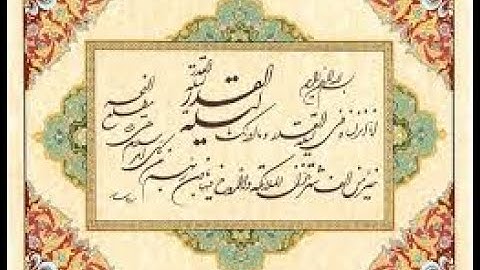 بسم الله الرحمن الرحیم
انا انزلناه فی لیلة القدر وما ادراک ما
لیلة القدر
لیلة القدر
خیر من الف شهر تنزل الملائکة والروح فیها باذن ربهم من
کل امر سلام هی حتی
مطلع
الفجر